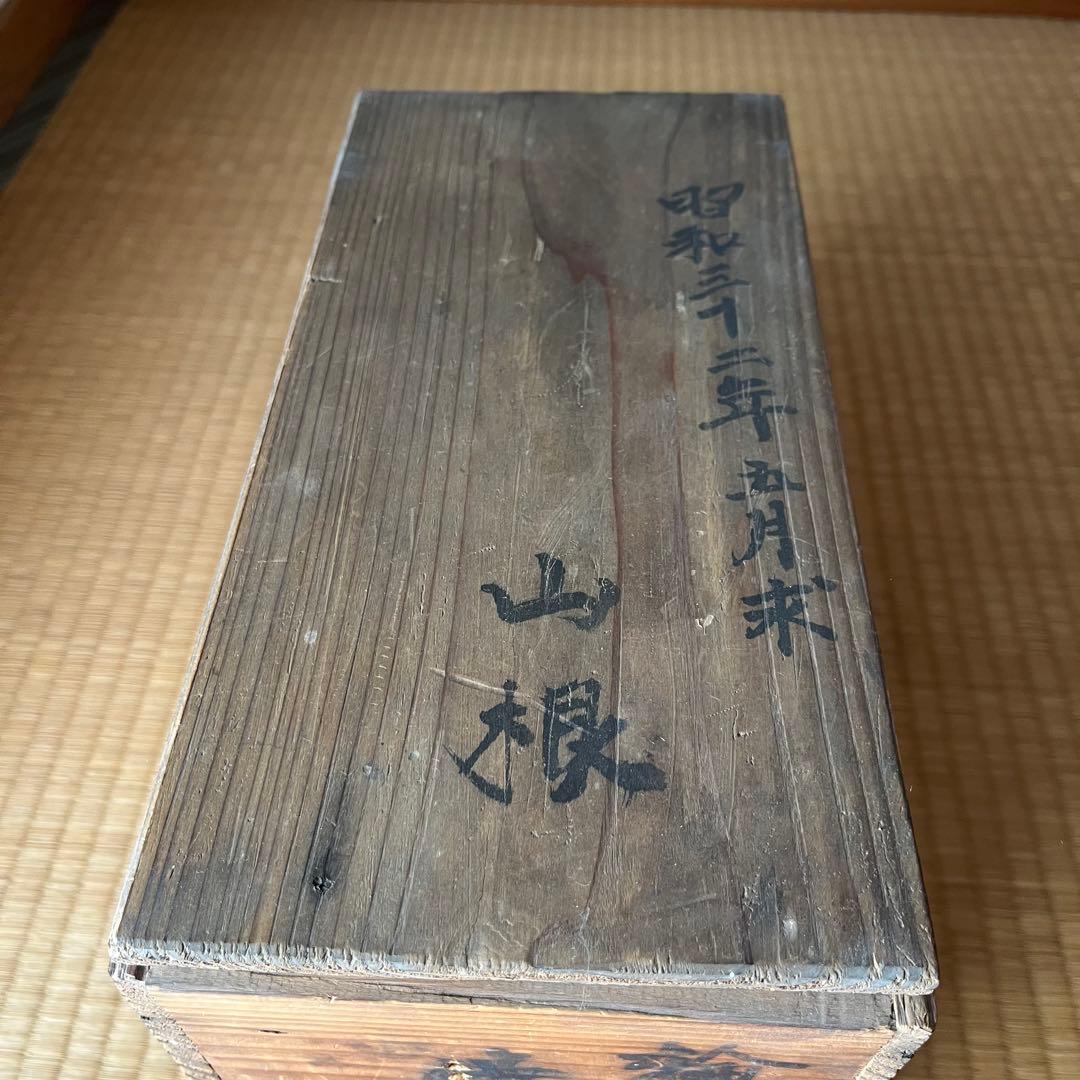 昭和三十二年五月求
山根